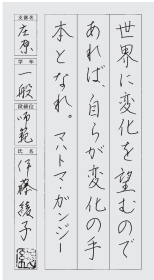 世界に変化を望むので
あれば、自らが変化の手
本となれ。マハトマ・ガンジー
支部名
庄原
学年
一般
段級位
師範
氏名
伊藤綾子